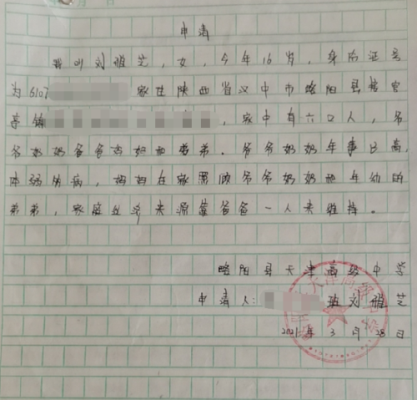 申请
我叫刘雅芝，女，今年16岁，身份证号
为6107 家住陕西省汉中市略阳县接官
亭镇 ，家中有六口人，爷
爷奶奶爸爸妈妈和弟弟。爷爷奶奶年事已高，
体弱多病，妈妈在家照顾爷爷奶奶和年幼的
弟弟，家庭经济来源靠爸爸一人来维持。
略阳县天津高级中学
申请人： 班刘雅芝
2021年3月28日